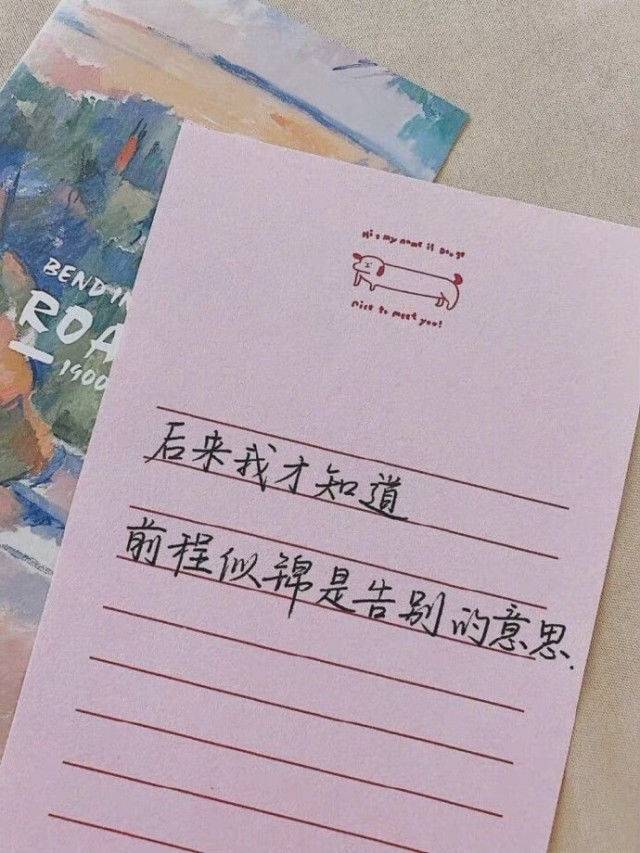 BENDIN
ROA
1900
Hi my name is Dooge
nice to meet you!
后来我才知道
前程似锦是告别的意思.